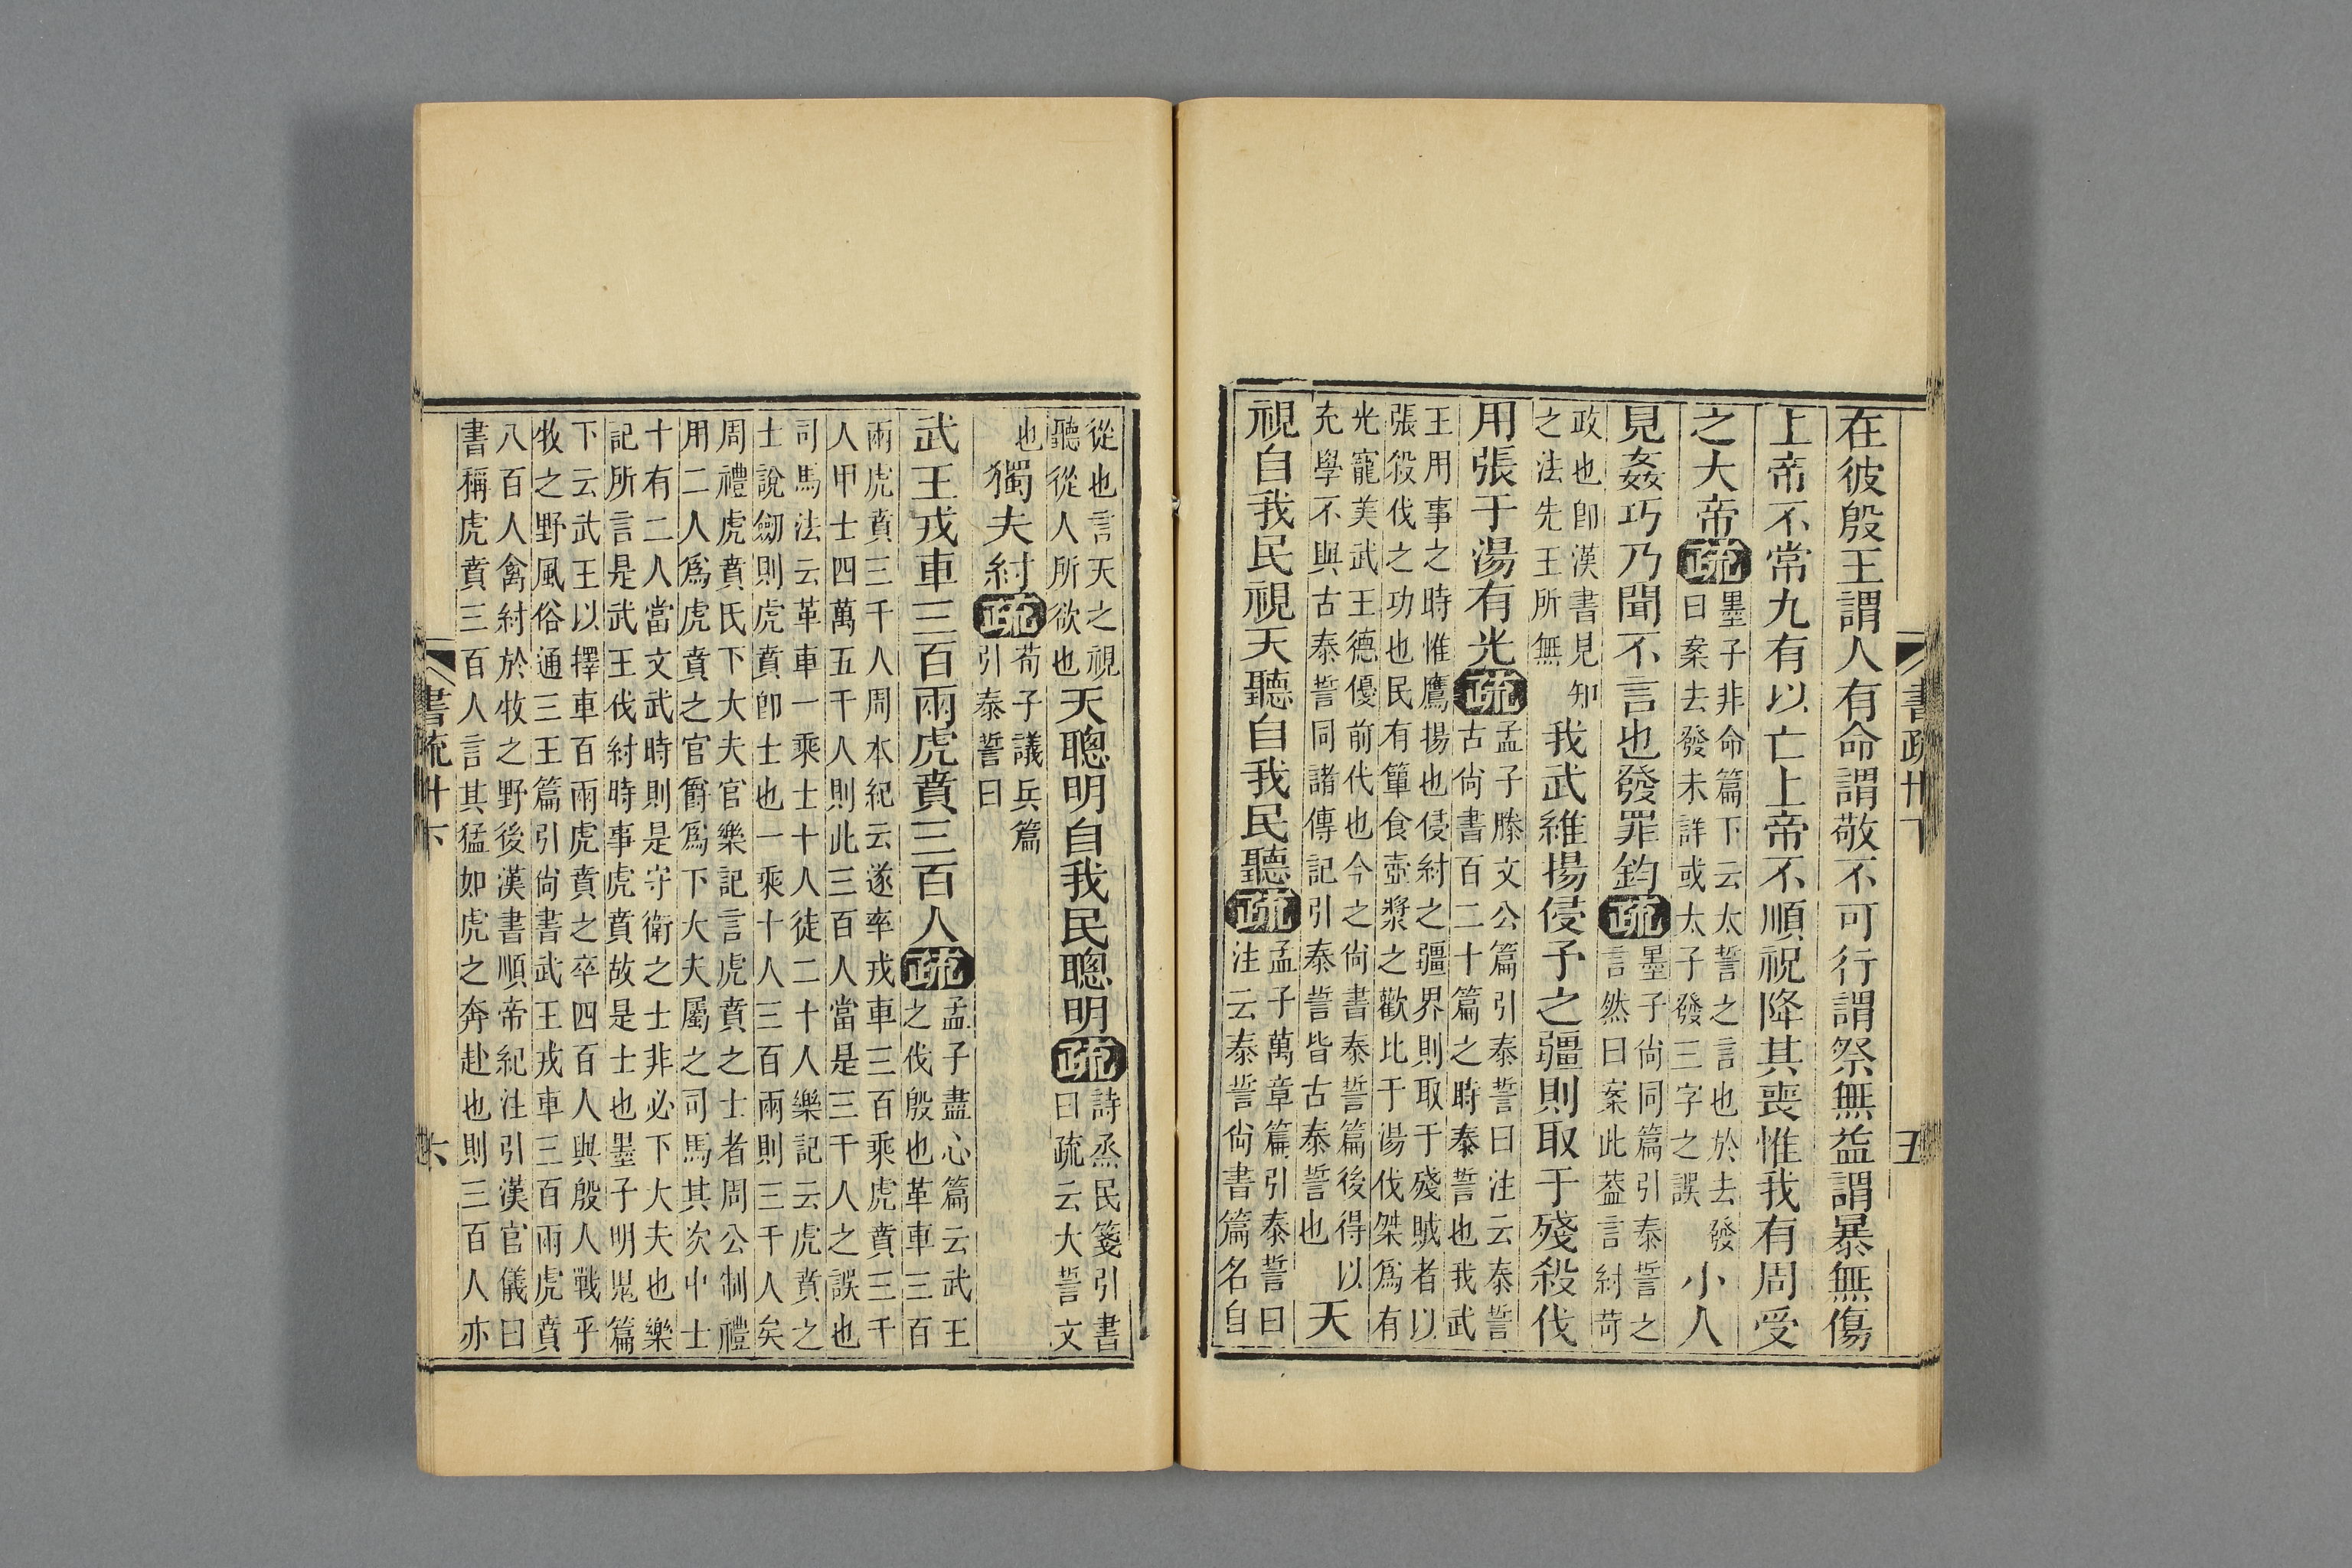 書疏卅下
五
在彼殷王謂人有命謂敬不可行謂祭無益謂暴無傷
上帝不常九有以亡上帝不順祝降其喪惟我有周受
之大帝疏
墨子非命篇下云太誓之言也於去發
曰案去發未詳或太子發三字之誤
小人
見姦巧乃聞不言也發罪鈞疏
墨子尙同篇引泰誓之
言然曰案此葢言紂苛
政也卽漢書見知
之法先王所無
我武維揚侵予之疆則取于殘殺伐
用張于湯有光疏
孟子滕文公篇引泰誓曰注云泰誓
古尙書百二十篇之時泰誓也我武
王用事之時惟鷹揚也侵紂之疆界則取于殘賊者以
張殺伐之功也民有簞食壺漿之歡比于湯伐桀爲有
光寵美武王德優前代也今之尙書泰誓篇後得以
充學不與古泰誓同諸傳記引泰誓皆古泰誓也
天
視自我民視天聽自我民聽疏
孟子萬章篇引泰誓曰
注云泰誓尙書篇名自
從也言天之視
聽從人所欲也
天聰明自我民聰明疏
詩烝民箋引書
曰疏云大誓文
也
獨夫紂疏
荀子議兵篇
引泰誓曰
武王戎車三百兩虎賁三百人疏
孟子盡心篇云武王
之伐殷也革車三百
兩虎賁三千人周本紀云遂率戎車三百乘虎賁三千
人甲士四萬五千人則此三百人當是三千人之誤也
司馬法云革車一乘士十人徒二十人樂記云虎賁之
士說劒則虎賁卽士也一乘十人三百兩則三千人矣
周禮虎賁氏下大夫官樂記言虎賁之士者周公制禮
用二人爲虎賁之官爵爲下大夫屬之司馬其次中士
十有二人當文武時則是守衛之士非必下大夫也樂
記所言是武王伐紂時事虎賁故是士也墨子明鬼篇
下云武王以擇車百兩虎賁之卒四百人與殷人戰乎
牧之野風俗通三王篇引尙書武王戎車三百兩虎賁
八百人禽紂於牧之野後漢書順帝紀注引漢官儀曰
書稱虎賁三百人言其猛如虎之奔赴也則三百人亦
書疏卅下
六